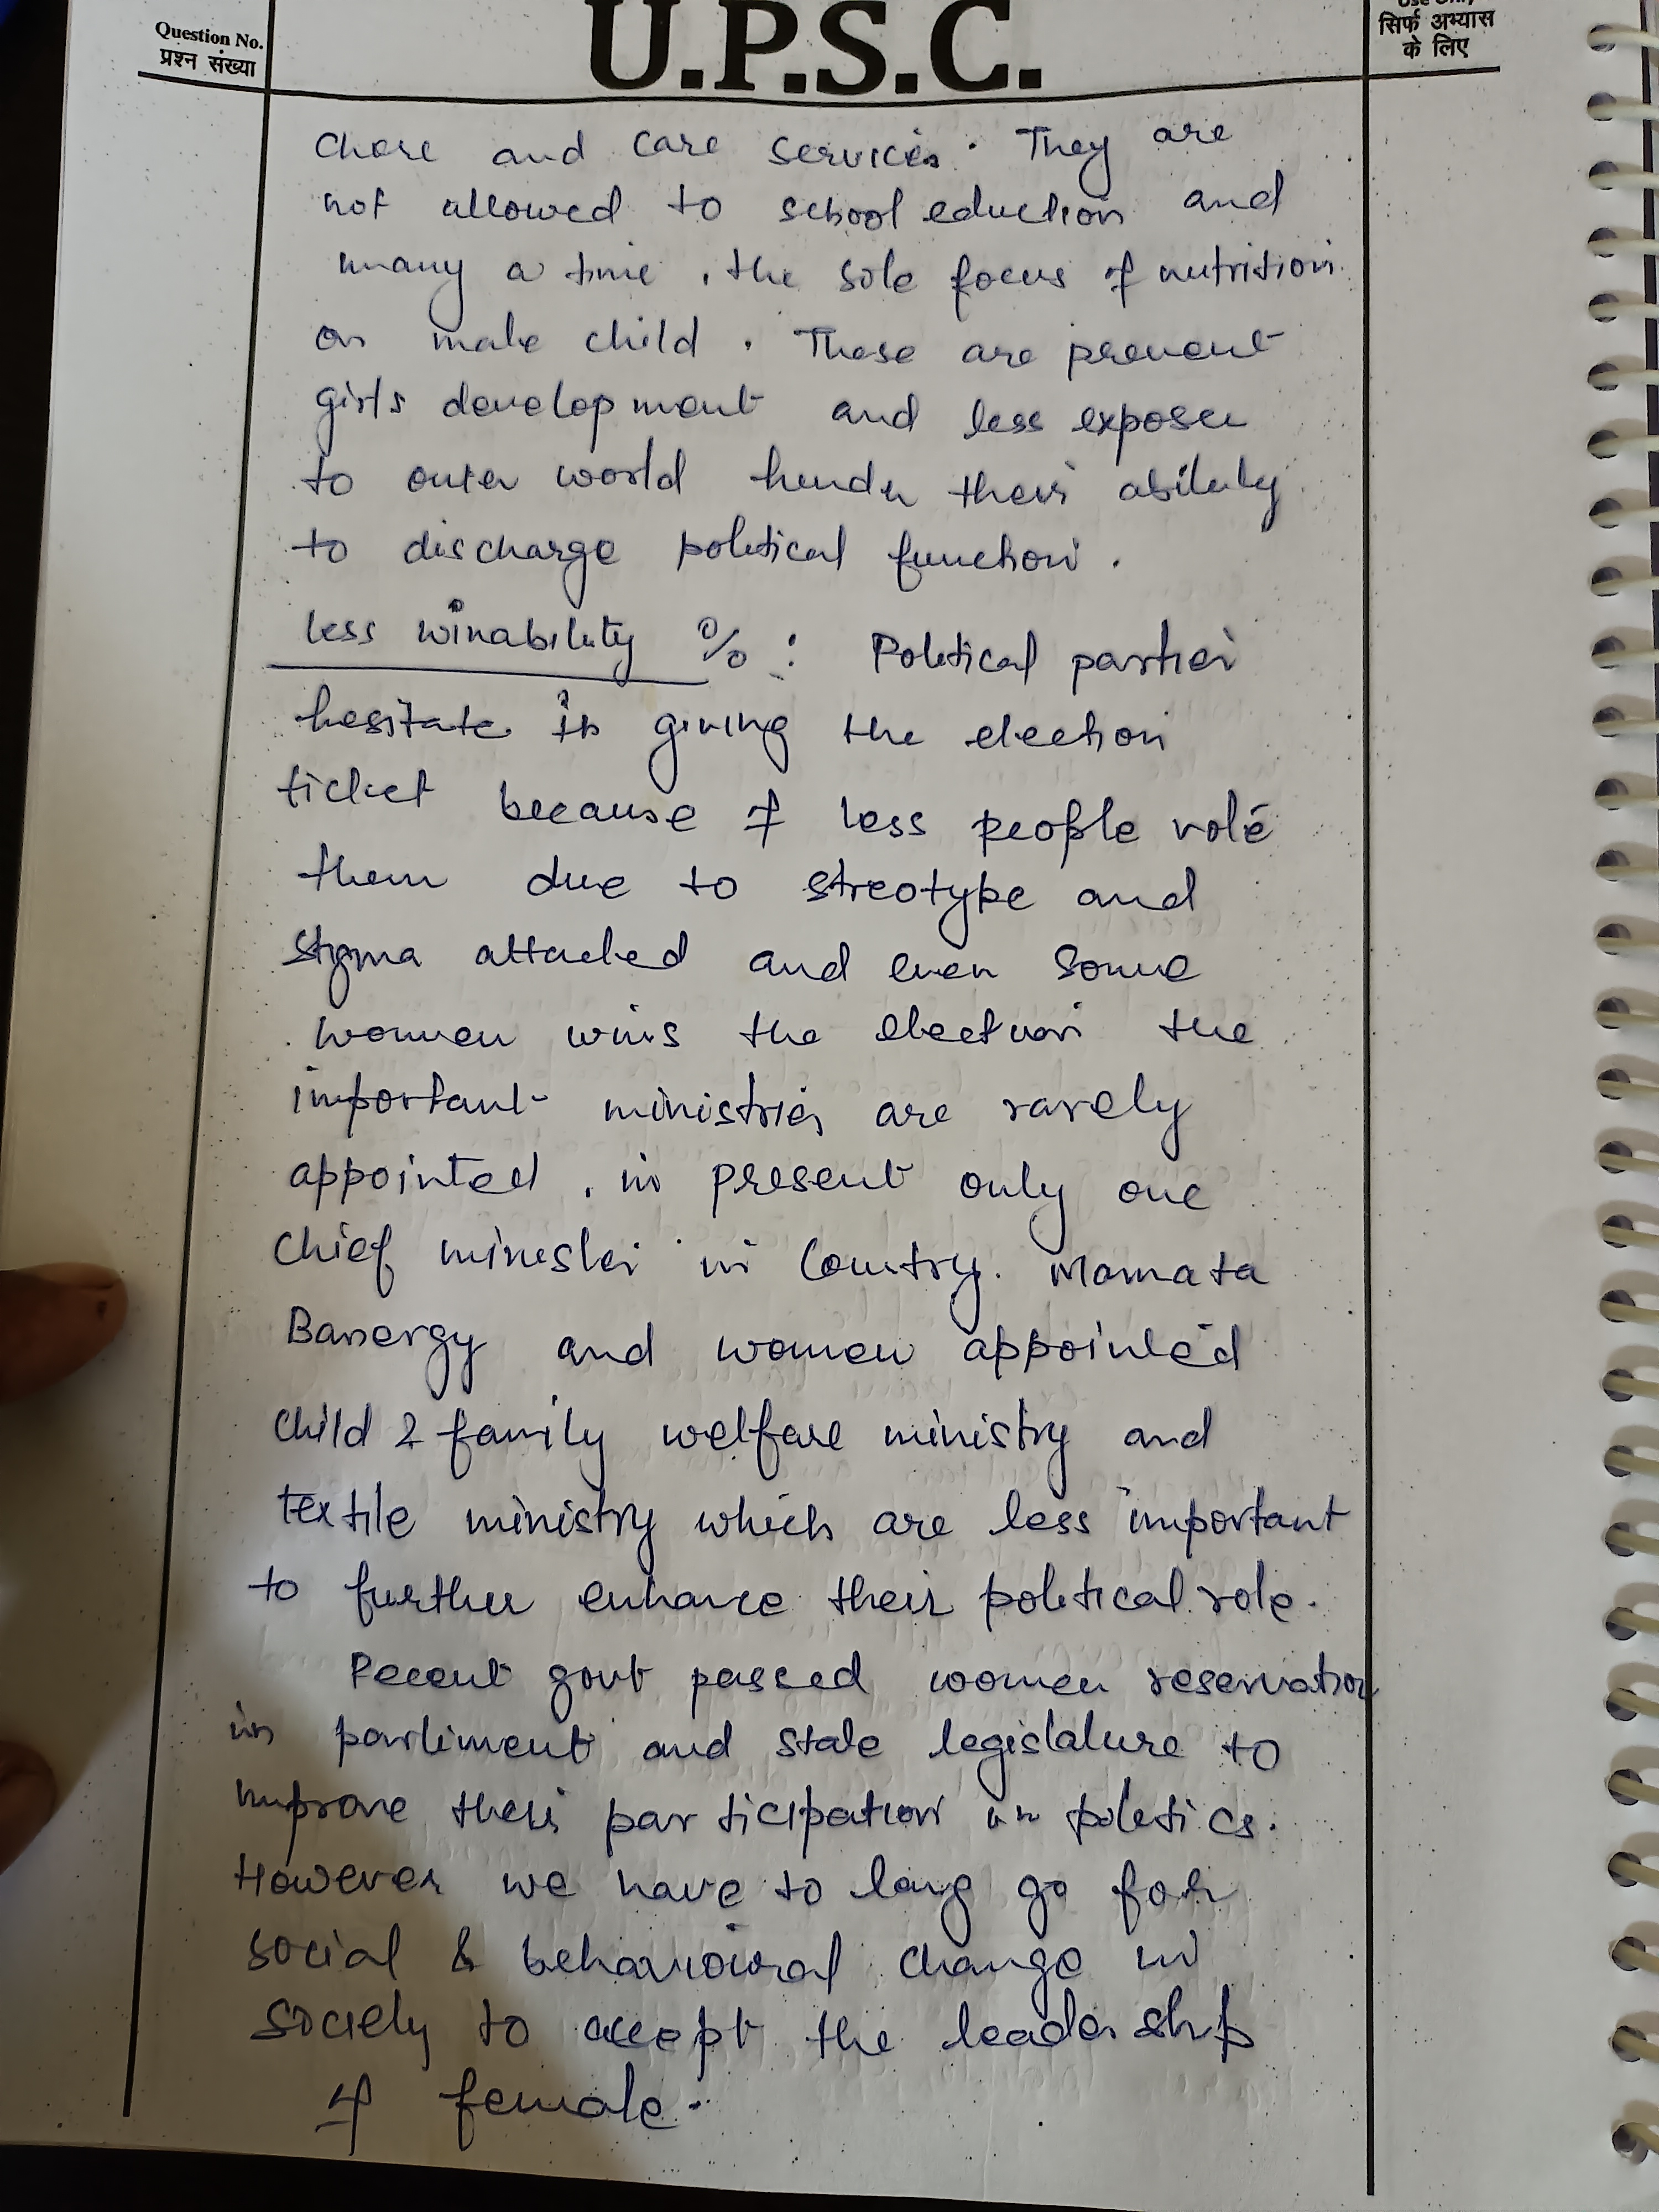 Question No.
प्रश्न संख्या
U.P.S.C.
Use Only
सिर्फ अभ्यास
के लिए
chore and care services. They are
not allowed to school eduction and
many a time, the sole focus of nutrition
on male child. These are prevent
girls development and less exposer
to outer world hinder their ability
to discharge political function.
less winability %: Political parties
hesitate in giving the election
ticket because of less people vote
them due to streotype and
stigma attached and even some
women wins the election the
important ministries are rarely
appointed, in present only one
chief minister in Country. Mamata
Banergy and women appointed
child & family welfare ministry and
textile ministry which are less important
to further enhance their political role.
Recent govt passed women reservation
in parliment and state legislature to
improve their participation in politics.
However we have to long go for
social & behavioural change in
society to accept the leadership
of female.